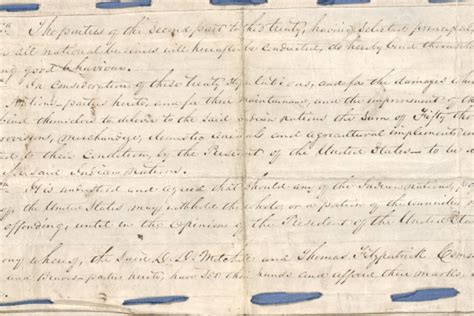 The parties of the Second part to this treaty, having Selected principals
all national business will hereafter be conducted, do hereby bind themselves
good behaviour.
In consideration of these treaty stipulations, and for the damages which
Nations - parties hereto, and for their maintenance, and the improvement of
bind themselves to deliver to the said Indian nations the Sum of Fifty thou
provisions, merchandize, domestic animals and agricultural implements
to their Condition, by the President of the United States - to be
said Indian Nations.
It is understood and agreed that should any of the Indian nations, p
the United States may withhold the whole or a portion of the annuities
offending, until in the opinion of the President of the United Sta
whereof, the Said D. D. Mitchell and Thomas Fitzpatrick Com
and Braves - parties hereto, have Set their hands and affixed their marks